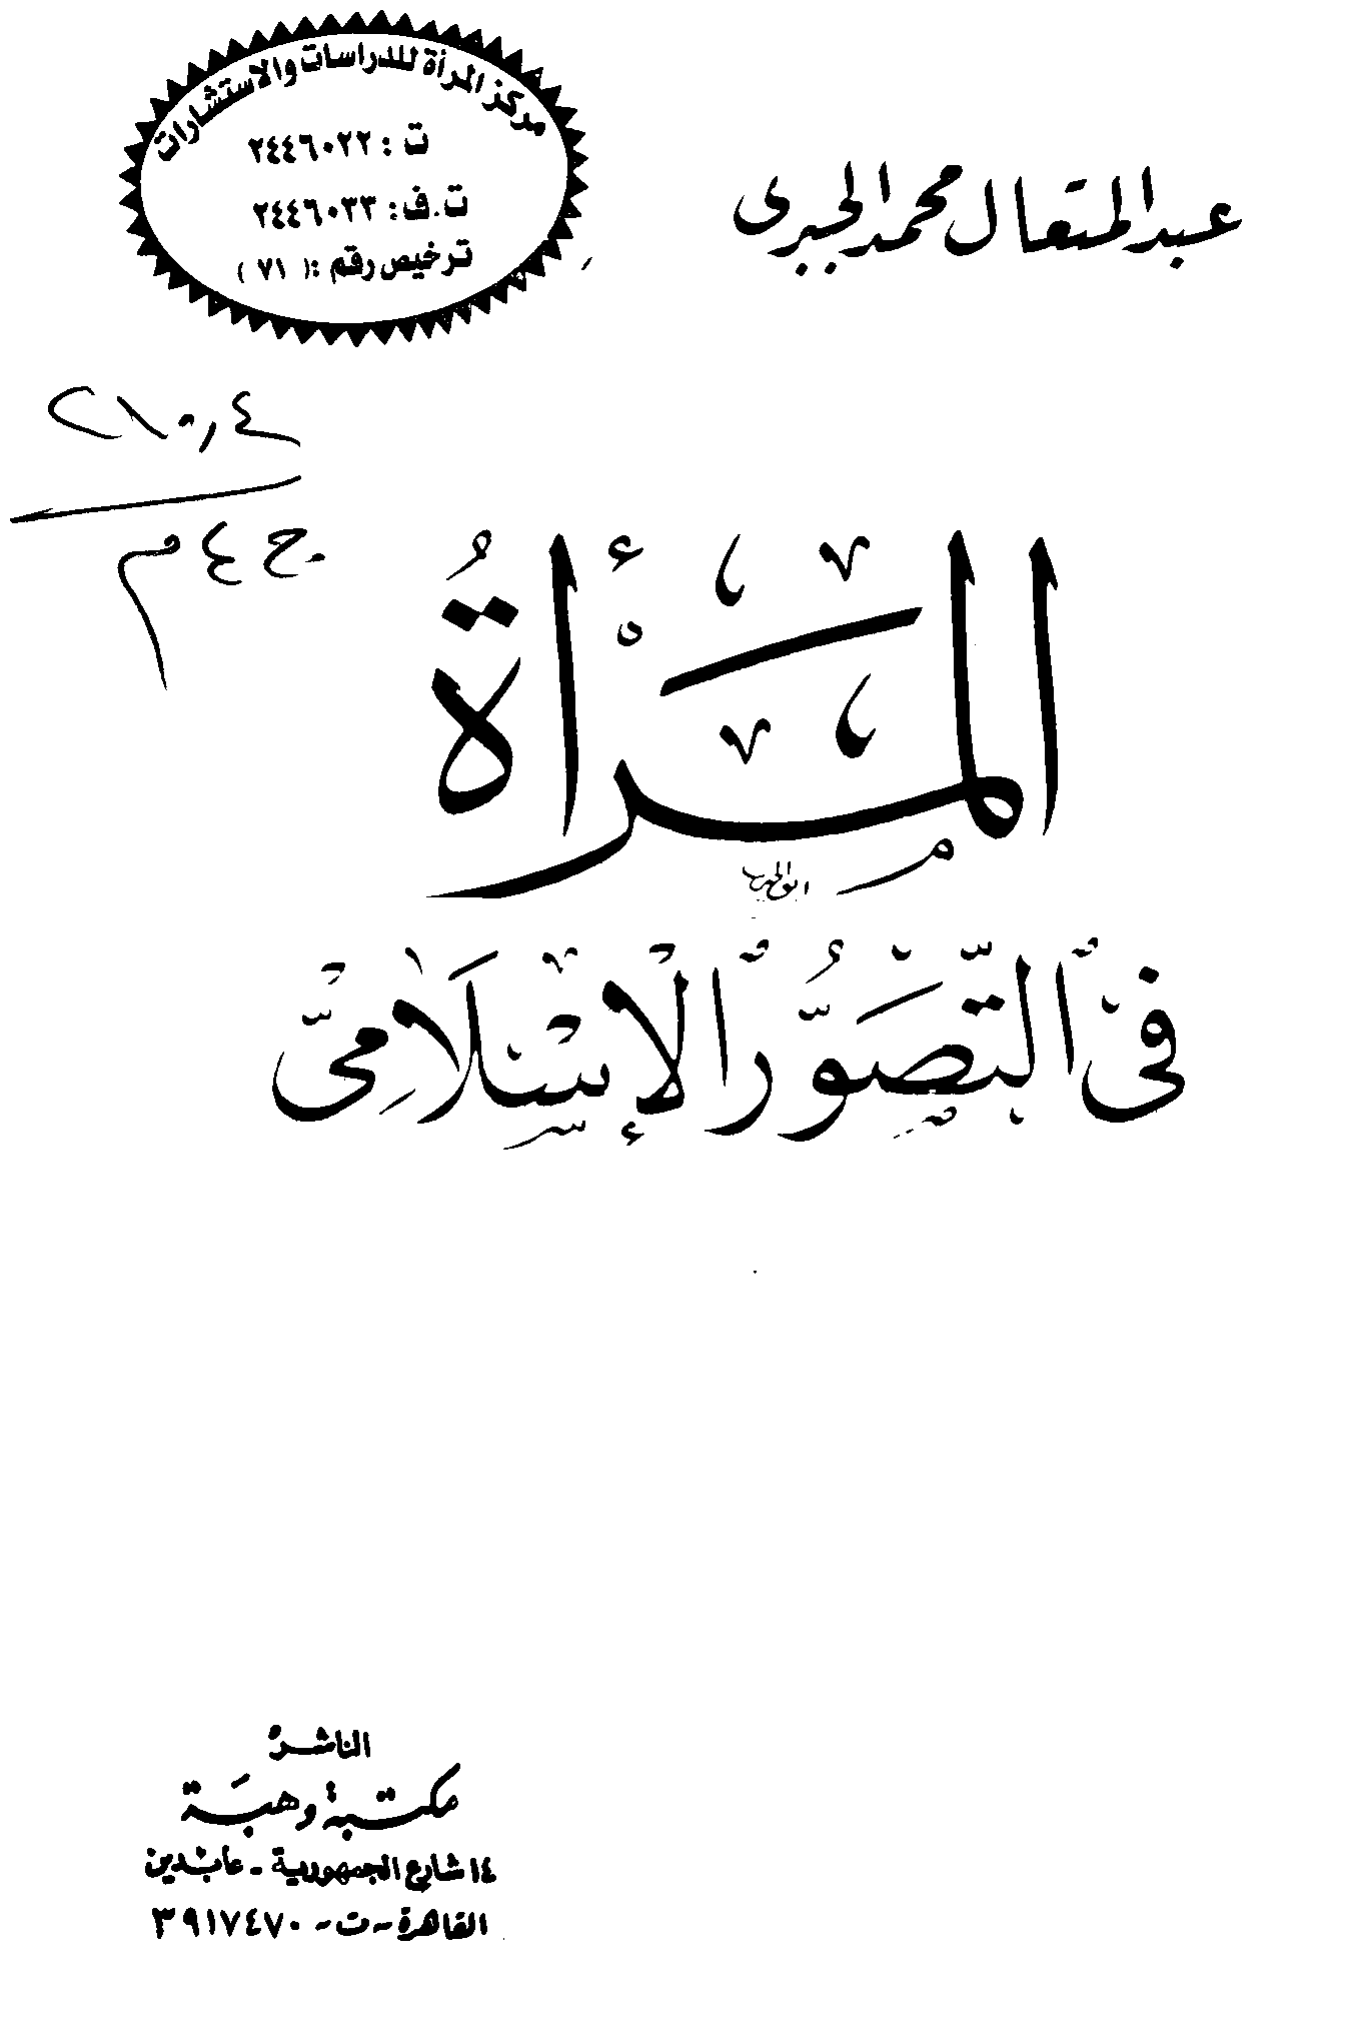 مركز المرأة للدراسات والاستشارات
ت : ٢٤٤٦٠٢٢
ت.ف : ٢٤٤٦٠٣٣
ترخيص رقم : ( ٧١ )
عبد المتعال محمد الجبرى
٢١٠,٤
ج ٤ م
المرأة
فى التصور الإسلامى
الناشر
مكتبة وهبة
١٤ شارع الجمهورية - عابدين
القاهرة - ت - ٣٩١٧٤٧٠